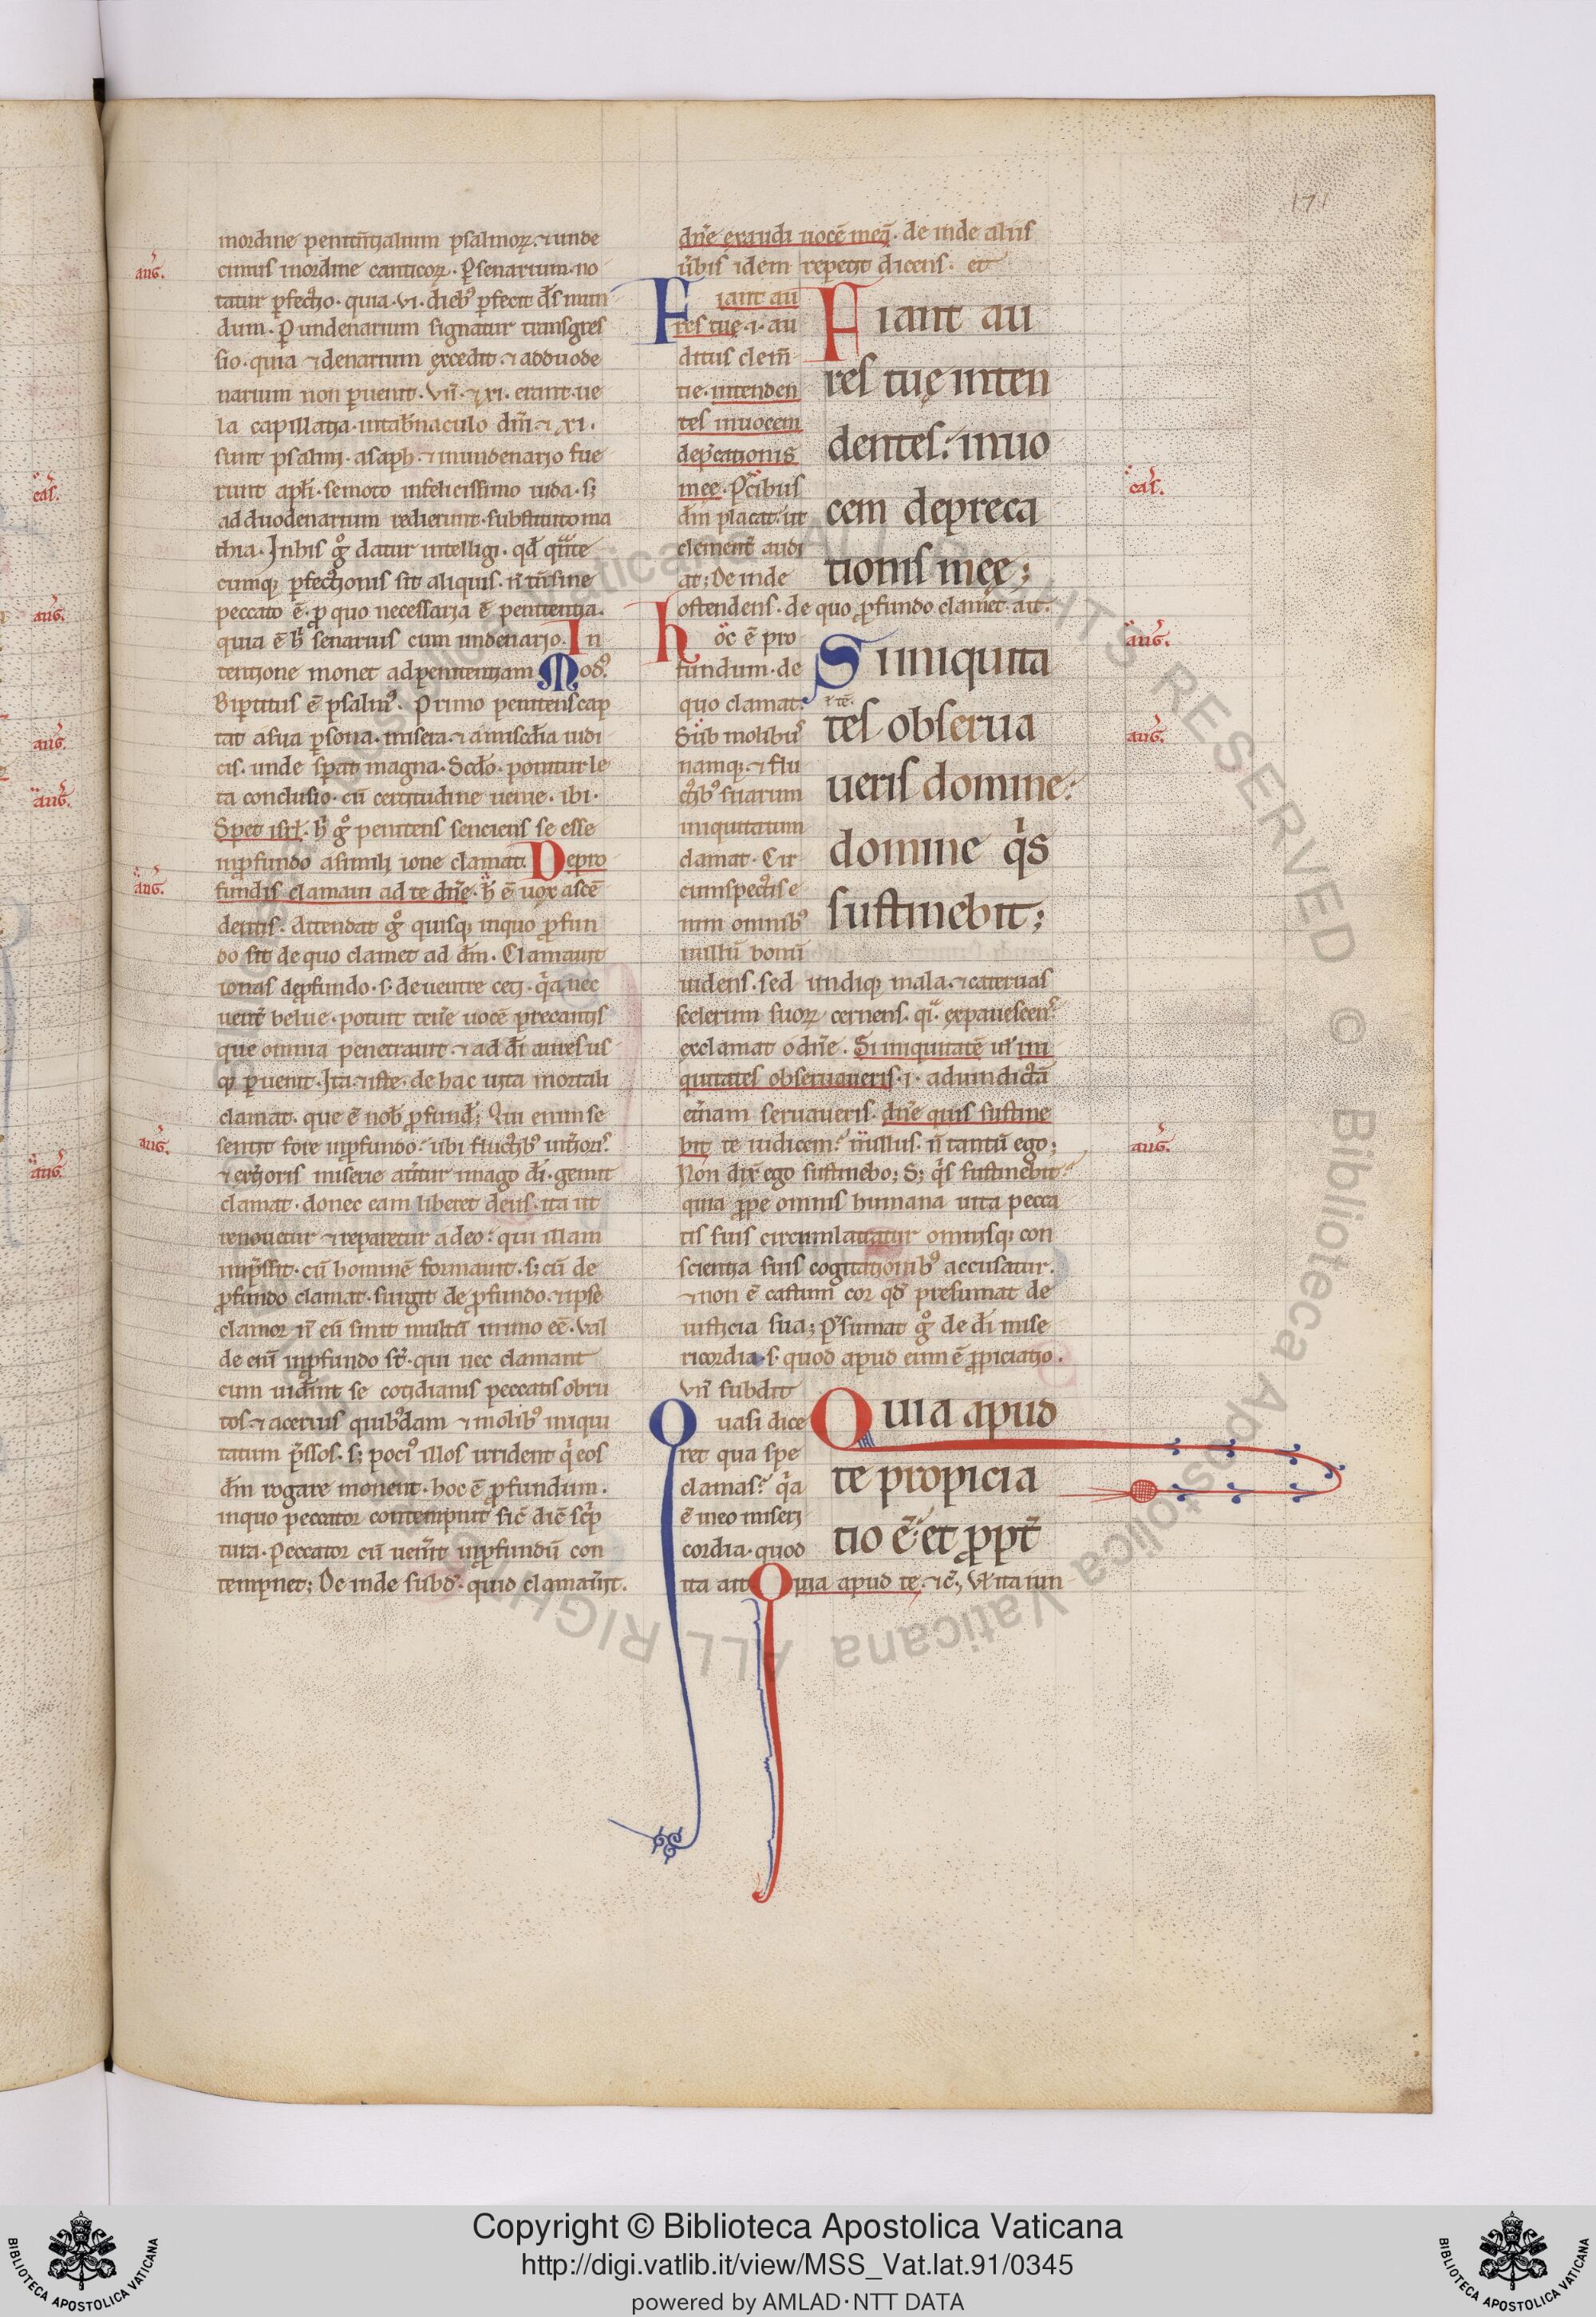 171
mordine penitn̄tialium psalmoꝝ. ⁊ unde
cimus inordine canticoꝝ. P senarium no
tatur ꝑfectio. quia .vi. dieb᷒ ꝑfecit d̄s mun
dum. P undenarium signatur transgres
sio. quia ⁊ denarium excedit. ⁊ adduode
narium non ꝑuenit. Vn̄ ⁊ xi. erant ue
la capillatia. intab̄naculo dn̄i. ⁊ xi.
sunt psalmi. asaph. ⁊ inundenario fue
runt apl̄i. semoto infelicissimo iuda. sꝫ
adduodenarium redierunt. substituto ma
thia. Inhis gͦ datur intelligi. qd̄
cumqꝫ ꝑfectionis sit aliquis. n̄ tn̄ sine
peccato ē. ꝓ quo necessaria ē penitentia.
quia ē h̄ senarius cum undenario. In
tentione monet ad penitentiam Mod᷒.
Bipartitus ē psalm᷒. Primo penitens cap
tat asua ꝑsona. misera. ⁊ amisc̄dia iudi
cis. unde sperat magna. Scd̄o. ponitur le
ta conclusio. cū certitudine uenie. ibi.
Speret isrl̄. h̄ gͦ penitens senciens se esse
inꝓfundo asimili ione clamat. Depro
fundis clamaui ad te dn̄e. h̄ ē uox ascē
dentis. Attendat gͦ quisqꝫ inquo ꝓfun
do sit de quo clamet ad dm̄. Clamauit
ionas deꝓfundo. s. deuentre ceti. qa nec
uent̄ belue. potuit ten̄e uocē precantis
que omnia penetrauit. ⁊ ad dī aures us
qꝫ ꝑuenit. Ita ⁊ iste. de hac uita mortali
clamat. que ē nob̄ ꝓfund̄; Qui enim se
sentit fore inꝓfundo. ubi fluctib᷒ int̄ioris
⁊ ext̄ioris miserie at̄itur imago dī. gemit
clamat. donec eam liberet deus. ita ut
renouetur ⁊ reparetur adeo. qui illam
imp̄ssit. cū hominē formauit. sꝫ cū de
ꝓfundo clamat. surgit de ꝓfundo. ⁊ ipse
clamor n̄ eū sinit multū inimo eē. Val
de enī inꝓfundo st̄. qui nec clamant
cum uid̄int se cotidianis peccatis obru
tos. ⁊ acerius quib᷒dam ⁊ molib᷒ iniqui
tatum p̄ssos. sꝫ poci᷒ illos irrident qͥ eos
dm̄ rogare monent. hoc ē ꝓfundum.
inquo peccator contempnit sic̄ dic̄ sc̄p
tura. Peccator cū uen̄it inꝓfundū con
tempnet; De inde subd̄. quid clamau̇it.
dn̄e exaudi uocē meā. de inde aliis
ūbis idem repetit dicens. et
Fiant au
res tuę .i. au
ditus clem̄
tie. intenden
tes inuocem
dep̄cationis
mee. P̄cibus
dm̄ placat. ut
clement̄ audi
at; De inde
ostendens. de quo ꝓfundo clamet. ait.
Hoc ē pro
fundum. de
quo clamat.
Sub molibus
namqꝫ. ⁊ flu
ctib᷒ suarum
iniquitatum
clamat. Cir
cumspectis e
nim omnib᷒
nullū bonū
uidens. sed undiqꝫ mala. ⁊ cateruas
scelerum suoꝝ cernens. qͣ expauescens
exclamat o dn̄e. Si iniquitatē ul̄ ini
quitates obseruaueris .i. adumdictā
et̄nam seruaueris. dn̄e quis sustine
bit te iudicem? nullus. n̄ tantū ego;
Non dix̄ ego sustinebo; Sꝫ qͥs sustinebit?
quia ꝓpe omnis humana uita pecca
tis suis circumlatratur omnisqꝫ con
scientia suis cogitationib᷒ accusatur.
⁊ non ē castum cor qd̄ presumat de
iusticia sua; P̄sumat gͦ de dī mise
ricordia .s. quod apud eum ē ꝓpiciatio.
Vn̄ subdit
Quasi dice
ret qua spe
clamas? qͣa
ē meo miseri
cordia. quod
ita ait Quia apud te. ⁊c̄. Vl̄ ita iun
Fiant au
res tuę inten
dentes: inuo
cem depreca
tionis meę;
Si iniquita
tes obserua
ueris domine:
domine qͥs
sustinebit;
Quia apud
te propicia
tio ē: et ꝓpt̄
auḡ.
auḡ.
auḡ.
cas̄.
auḡ.
auḡ.
auḡ.
cas̄.
auḡ.
auḡ.
auḡ.
auḡ.
Copyright © Biblioteca Apostolica Vaticana
http://digi.vatlib.it/view/MSS_Vat.lat.91/0345
powered by AMLAD·NTT DATA
BIBLIOTECA APOSTOLICA VATICANA
BIBLIOTECA APOSTOLICA VATICANA
ALL RIGHTS RESERVED © Biblioteca Apostolica Vaticana